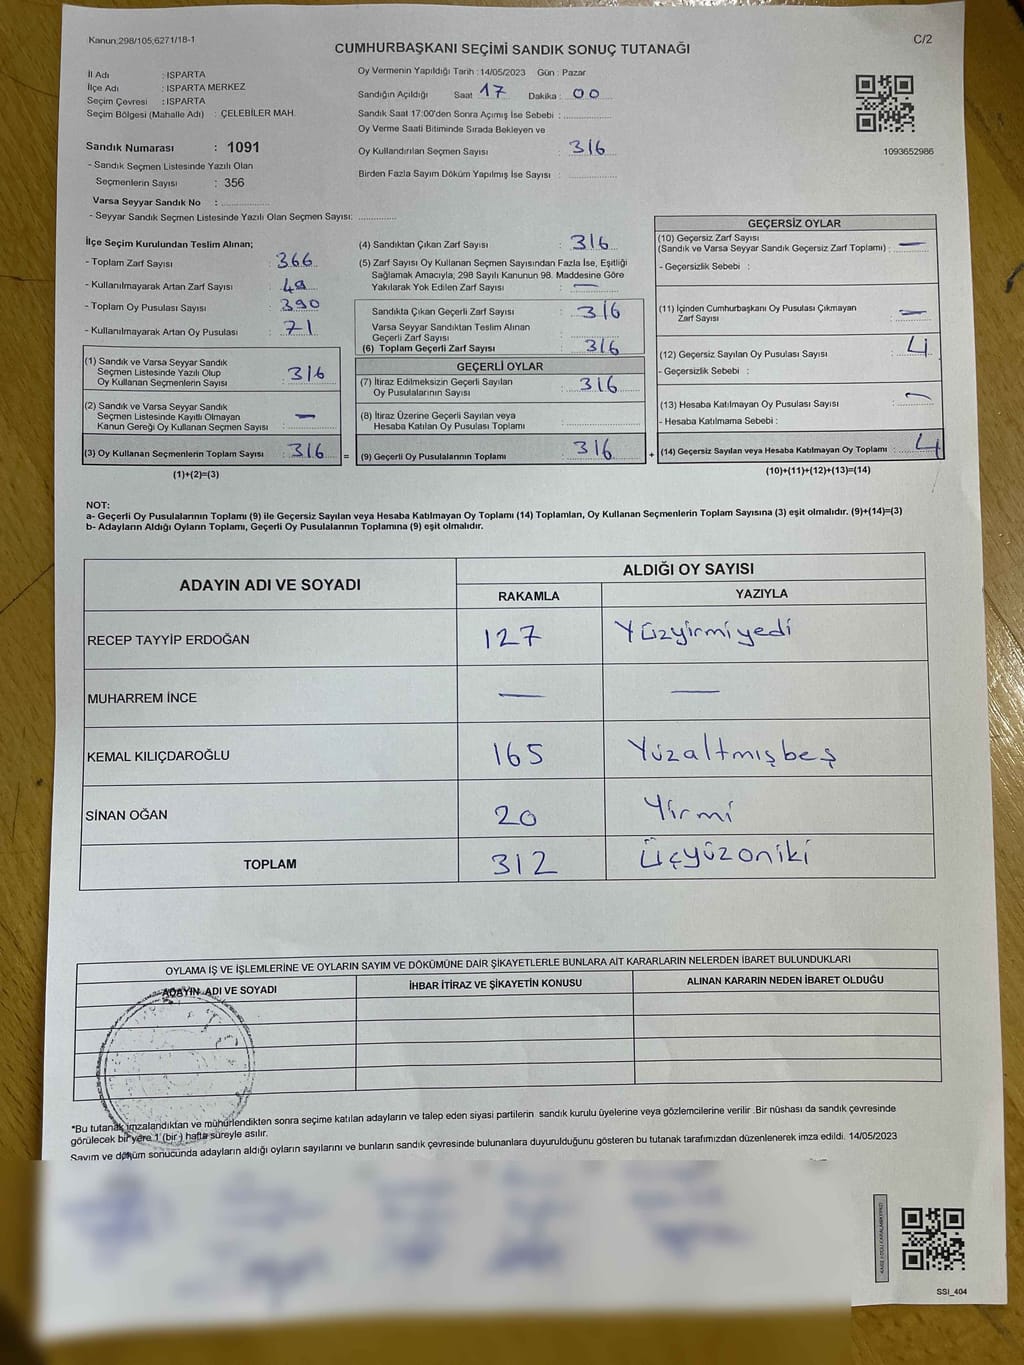 Kanun;298/105,6271/18-1
C/2
CUMHURBAŞKANI SEÇİMİ SANDIK SONUÇ TUTANAĞI
İl Adı : ISPARTA
İlçe Adı : ISPARTA MERKEZ
Seçim Çevresi : ISPARTA
Seçim Bölgesi (Mahalle Adı) : ÇELEBİLER MAH.
Sandık Numarası : 1091
- Sandık Seçmen Listesinde Yazılı Olan
Seçmenlerin Sayısı : 356
Varsa Seyyar Sandık No :
- Seyyar Sandık Seçmen Listesinde Yazılı Olan Seçmen Sayısı:
Oy Vermenin Yapıldığı Tarih : 14/05/2023 Gün : Pazar
Sandığın Açıldığı Saat 17 Dakika : 00
Sandık Saat 17:00'den Sonra Açımış İse Sebebi :
Oy Verme Saati Bitiminde Sırada Bekleyen ve
Oy Kullandırılan Seçmen Sayısı : 316
Birden Fazla Sayım Döküm Yapılmış İse Sayısı :
1093652986
İlçe Seçim Kurulundan Teslim Alınan;
- Toplam Zarf Sayısı : 366
- Kullanılmayarak Artan Zarf Sayısı : 49
- Toplam Oy Pusulası Sayısı : 390
- Kullanılmayarak Artan Oy Pusulası : 71
(1) Sandık ve Varsa Seyyar Sandık
Seçmen Listesinde Yazılı Olup
Oy Kullanan Seçmenlerin Sayısı : 316
(2) Sandık ve Varsa Seyyar Sandık
Seçmen Listesinde Kayıtlı Olmayan
Kanun Gereği Oy Kullanan Seçmen Sayısı : —
(3) Oy Kullanan Seçmenlerin Toplam Sayısı : 316
(1)+(2)=(3)
(4) Sandıktan Çıkan Zarf Sayısı : 316
(5) Zarf Sayısı Oy Kullanan Seçmen Sayısından Fazla İse, Eşitliği
Sağlamak Amacıyla, 298 Sayılı Kanunun 98. Maddesine Göre
Yakılarak Yok Edilen Zarf Sayısı : —
Sandıkta Çıkan Geçerli Zarf Sayısı : 316
Varsa Seyyar Sandıktan Teslim Alınan
Geçerli Zarf Sayısı :
(6) Toplam Geçerli Zarf Sayısı : 316
GEÇERLİ OYLAR
(7) İtiraz Edilmeksizin Geçerli Sayılan
Oy Pusulalarının Sayısı : 316
(8) İtiraz Üzerine Geçerli Sayılan veya
Hesaba Katılan Oy Pusulası Toplamı :
= (9) Geçerli Oy Pusulalarının Toplamı : 316
GEÇERSİZ OYLAR
(10) Geçersiz Zarf Sayısı
(Sandık ve Varsa Seyyar Sandık Geçersiz Zarf Toplamı) : —
- Geçersizlik Sebebi :
(11) İçinden Cumhurbaşkanı Oy Pusulası Çıkmayan
Zarf Sayısı : —
(12) Geçersiz Sayılan Oy Pusulası Sayısı : 4
- Geçersizlik Sebebi :
(13) Hesaba Katılmayan Oy Pusulası Sayısı : —
- Hesaba Katılmama Sebebi :
+ (14) Geçersiz Sayılan veya Hesaba Katılmayan Oy Toplamı : 4
(10)+(11)+(12)+(13)=(14)
NOT:
a- Geçerli Oy Pusulalarının Toplamı (9) ile Geçersiz Sayılan veya Hesaba Katılmayan Oy Toplamı (14) Toplamları, Oy Kullanan Seçmenlerin Toplam Sayısına (3) eşit olmalıdır. (9)+(14)=(3)
b- Adayların Aldığı Oyların Toplamı, Geçerli Oy Pusulalarının Toplamına (9) eşit olmalıdır.
ADAYIN ADI VE SOYADI
ALDIĞI OY SAYISI
RAKAMLA YAZIYLA
RECEP TAYYİP ERDOĞAN 127 Yüzyirmiyedi
MUHARREM İNCE — —
KEMAL KILIÇDAROĞLU 165 Yüzaltmışbeş
SİNAN OĞAN 20 Yirmi
TOPLAM 312 Üçyüzoniki
OYLAMA İŞ VE İŞLEMLERİNE VE OYLARIN SAYIM VE DÖKÜMÜNE DAİR ŞİKAYETLERLE BUNLARA AİT KARARLARIN NELERDEN İBARET BULUNDUKLARI
ADAYIN ADI VE SOYADI İHBAR İTİRAZ VE ŞİKAYETİN KONUSU ALINAN KARARIN NEDEN İBARET OLDUĞU
*Bu tutanak imzalandıktan ve mühürlendikten sonra seçime katılan adayların ve talep eden siyasi partilerin sandık kurulu üyelerine veya gözlemcilerine verilir .Bir nüshası da sandık çevresinde
görülecek bir yere 1 (bir ) hafta süreyle asılır.
Sayım ve döküm sonucunda adayların aldığı oyların sayılarını ve bunların sandık çevresinde bulunanlara duyurulduğunu gösteren bu tutanak tarafımızdan düzenlenerek imza edildi. 14/05/2023
SSI_404